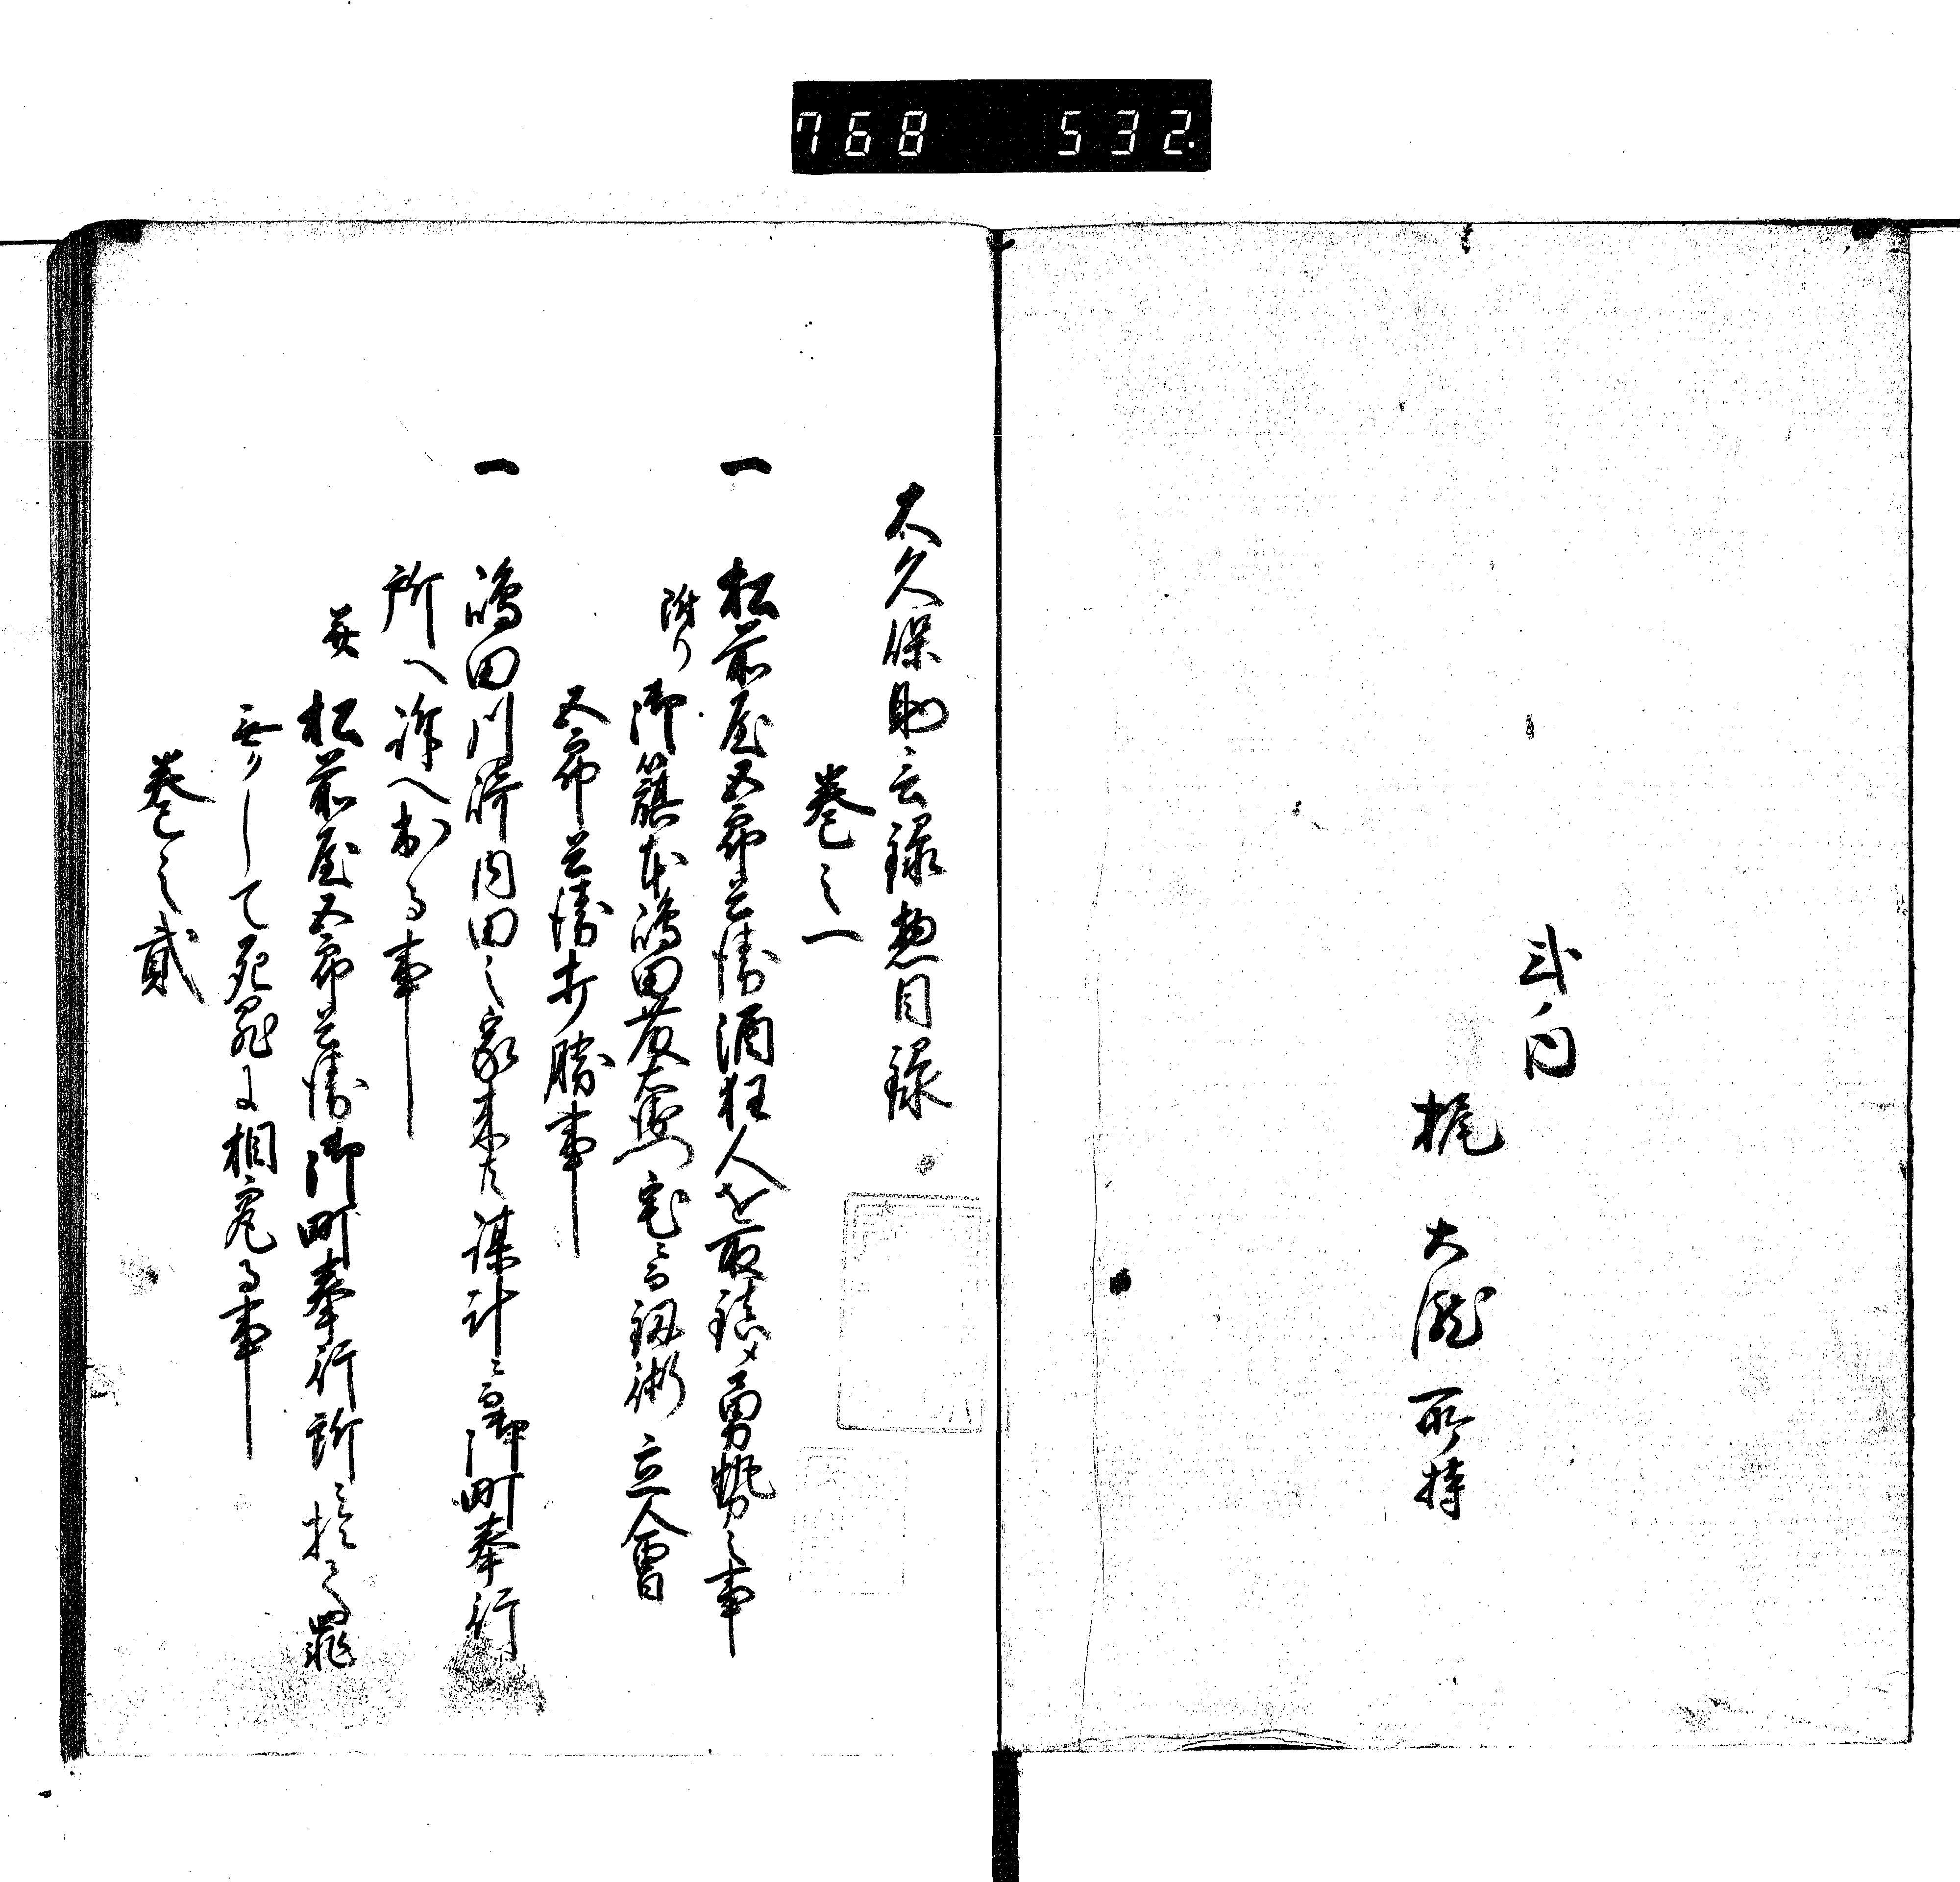 768 532.
梶 大瀧 所持
大久保助云録惣目録
巻之一
一 松前屋五郎兵衛酒狂人を取鎮メ勇勢之事
附り 御籏本嶋田 宅ニ而釼術立會
五郎兵衛打勝事
一 嶋田川 内田之家来共謀計ニ而御町奉行
所へ訴へ出る事
并 松前屋五郎兵衛御町奉行所ニ於て罪
無クして死罪に相定る事
巻之貳